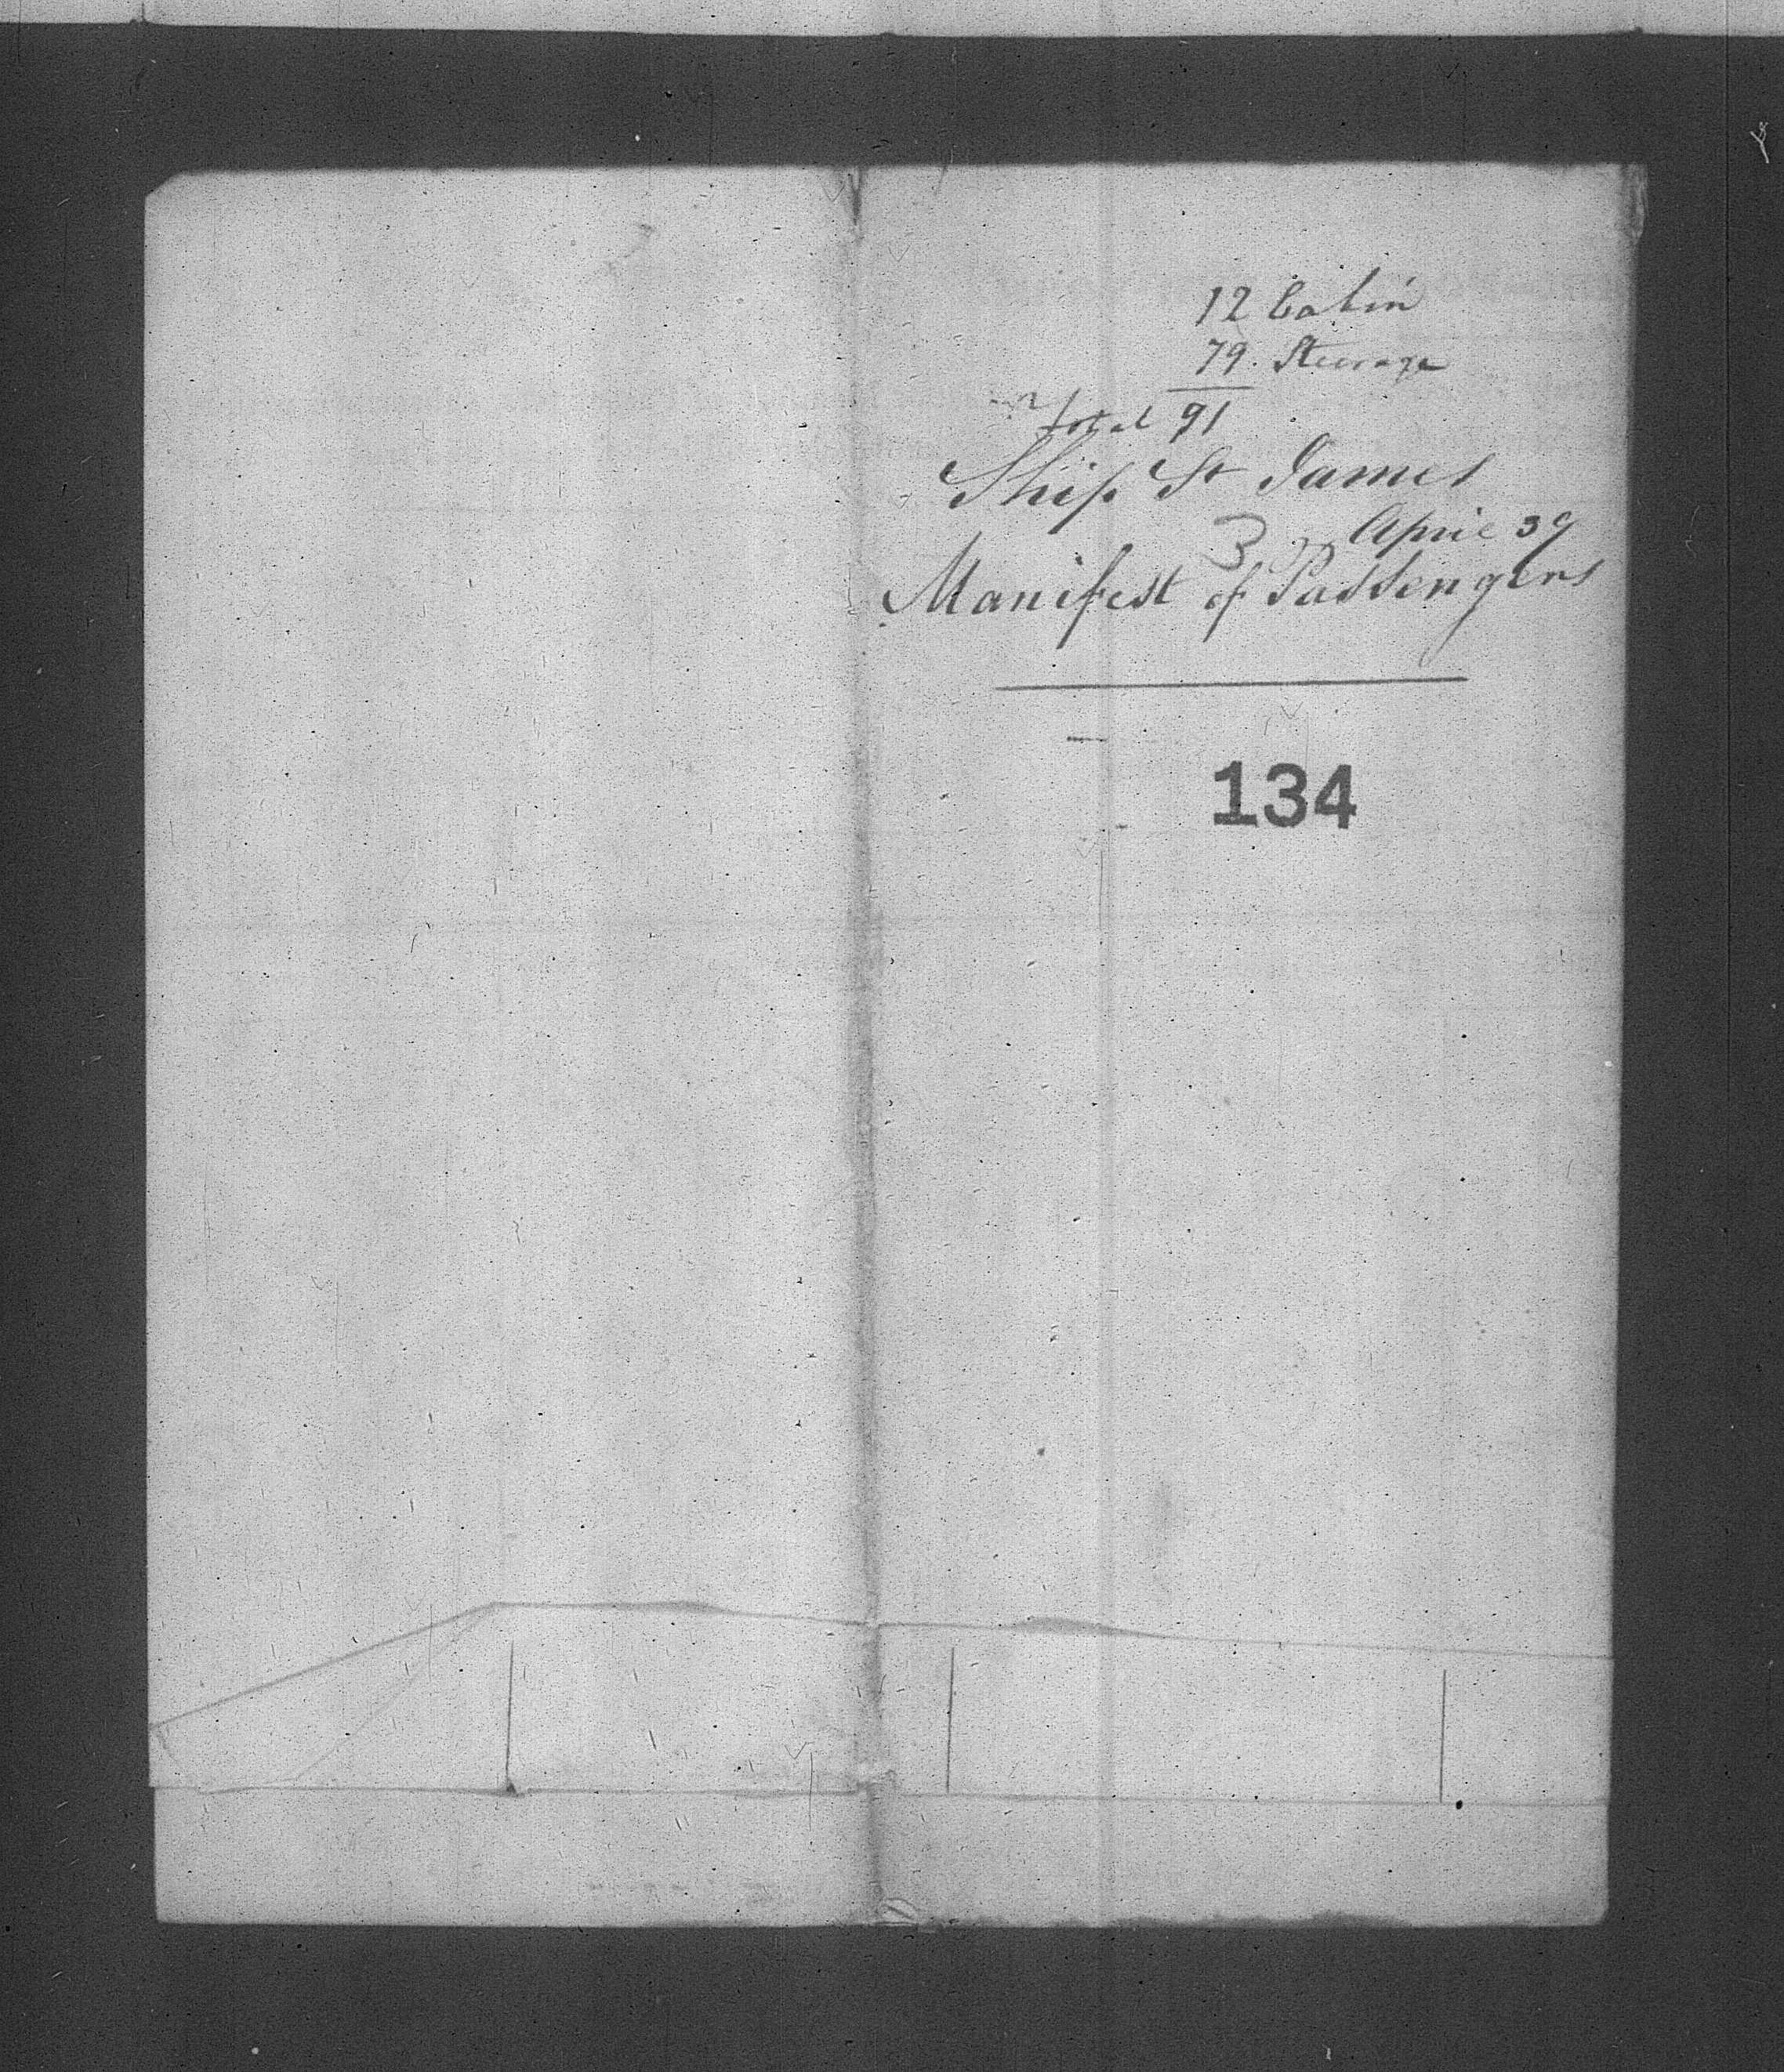 12 Cabin
79. Steerage
Total 91
Ship St James
April 39
3
Manifest of Passengers
134